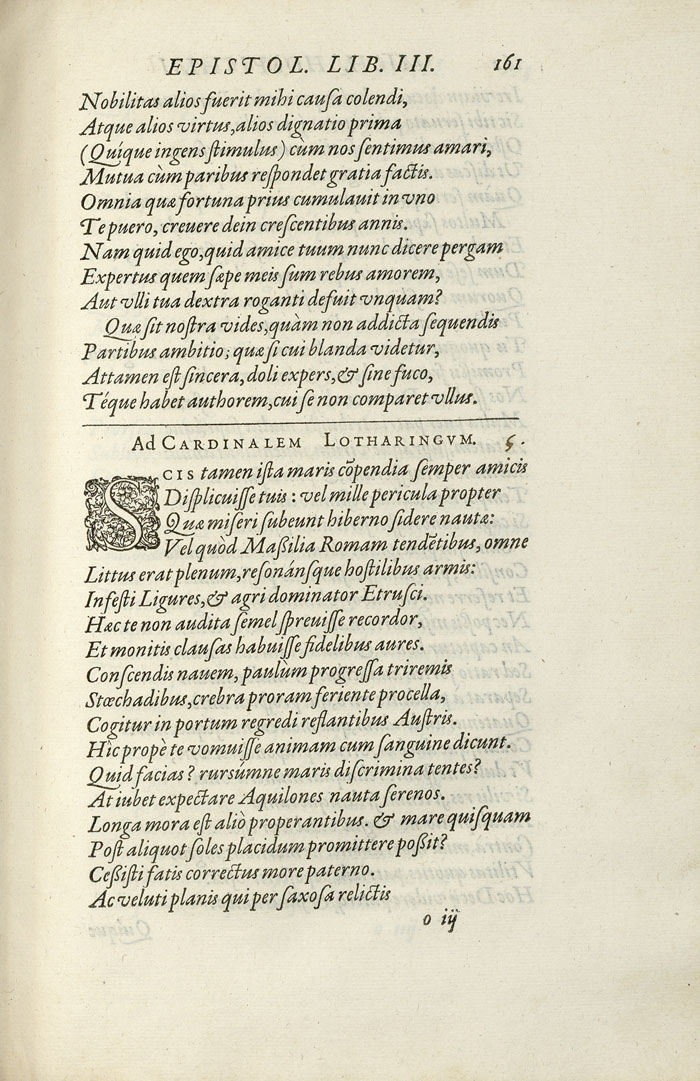 EPISTOL. LIB. III. 161
Nobilitas alios fuerit mihi cauſa colendi,
Atque alios virtus, alios dignatio prima
(Quíque ingens ſtimulus) cùm nos ſentimus amari,
Mutua cùm paribus reſpondet gratia factis.
Omnia quæ fortuna prius cumulauit in vno
Te puero, creuere dein creſcentibus annis.
Nam quid ego, quid amice tuum nunc dicere pergam
Expertus quem ſæpe meis ſum rebus amorem,
Aut vlli tua dextra roganti defuit vnquam?
Quæ ſit noſtra vides, quàm non addicta ſequendis
Partibus ambitio; quæ ſi cui blanda videtur,
Attamen eſt ſincera, doli expers, & ſine fuco,
Téque habet authorem, cui ſe non comparet vllus.
Ad CARDINALEM LOTHARINGVM. 5.
SCIS tamen iſta maris cõpendia ſemper amicis
Diſplicuiſſe tuis: vel mille pericula propter
Quæ miſeri ſubeunt hiberno ſidere nautæ:
Vel quòd Maßilia Romam tendẽtibus, omne
Littus erat plenum, reſonánſque hoſtilibus armis:
Infeſti Ligures, & agri dominator Etruſci.
Hæc te non audita ſemel ſpreuiſſe recordor,
Et monitis clauſas habuiſſe fidelibus aures.
Conſcendis nauem, paulùm progreſſa triremis
Stœchadibus, crebra proram feriente procella,
Cogitur in portum regredi reflantibus Auſtris.
Hîc propè te vomuiſſe animam cum ſanguine dicunt.
Quid facias? rurſúmne maris diſcrimina tentes?
At iubet expectare Aquilones nauta ſerenos.
Longa mora eſt aliò properantibus. & mare quiſquam
Poſt aliquot ſoles placidum promittere poßit?
Ceßiſti fatis correctus more paterno.
Ac veluti planis qui per ſaxoſa relictis
o iij